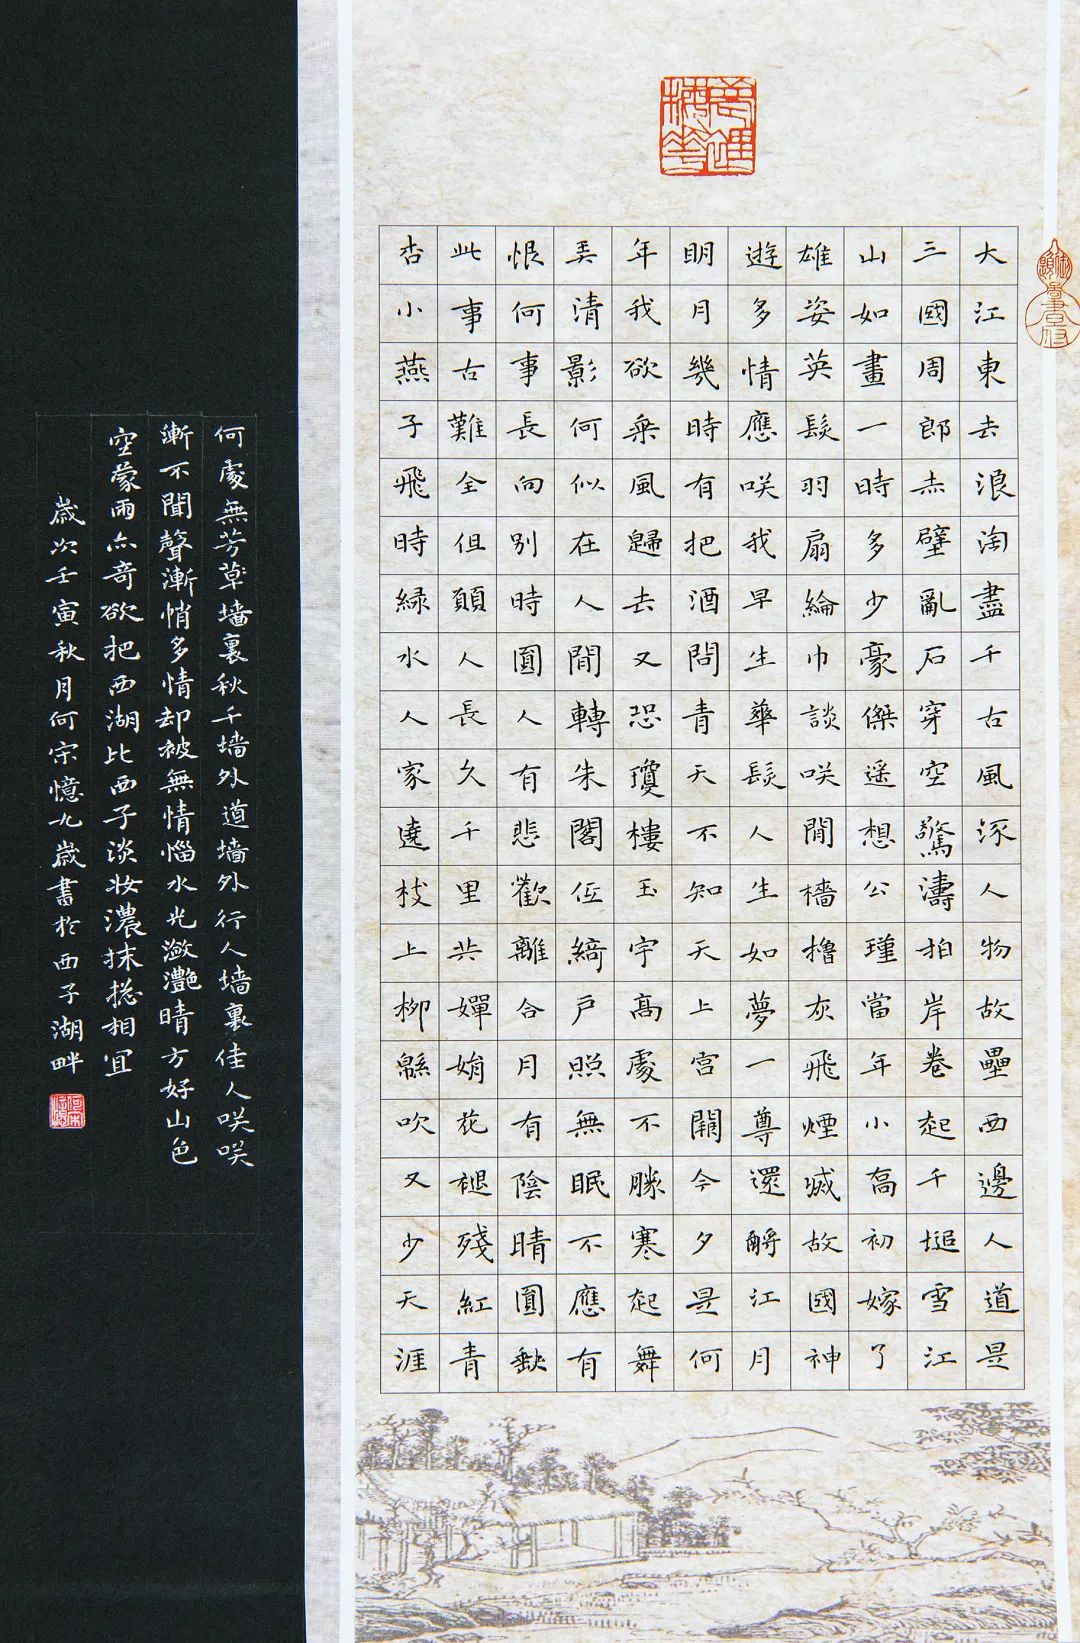 大江東去浪淘盡千古風流人物故壘西邊人道是
三國周郎赤壁亂石穿空驚濤拍岸卷起千堆雪江
山如畫一時多少豪傑遥想公瑾當年小喬初嫁了
雄姿英髮羽扇綸巾談咲間檣櫓灰飛煙滅故國神
遊多情應咲我早生華髮人生如夢一尊還酹江月
明月幾時有把酒問青天不知天上宫闕今夕是何
年我欲乘風歸去又恐瓊樓玉宇高處不勝寒起舞
弄清影何似在人間轉朱閣低綺户照無眠不應有
恨何事長向别時圓人有悲歡離合月有陰晴圓缺
此事古難全但願人長久千里共嬋娟花褪殘紅青
杏小燕子飛時緑水人家遶枝上柳緜吹又少天涯
何處無芳草墙裏秋千墙外道墙外行人墙裏佳人咲咲
漸不聞聲漸悄多情却被無情惱水光瀲灧晴方好山色
空蒙雨亦奇欲把西湖比西子淡妝濃抹揔相宜
歲次壬寅秋月何宗憶九歲書於西子湖畔